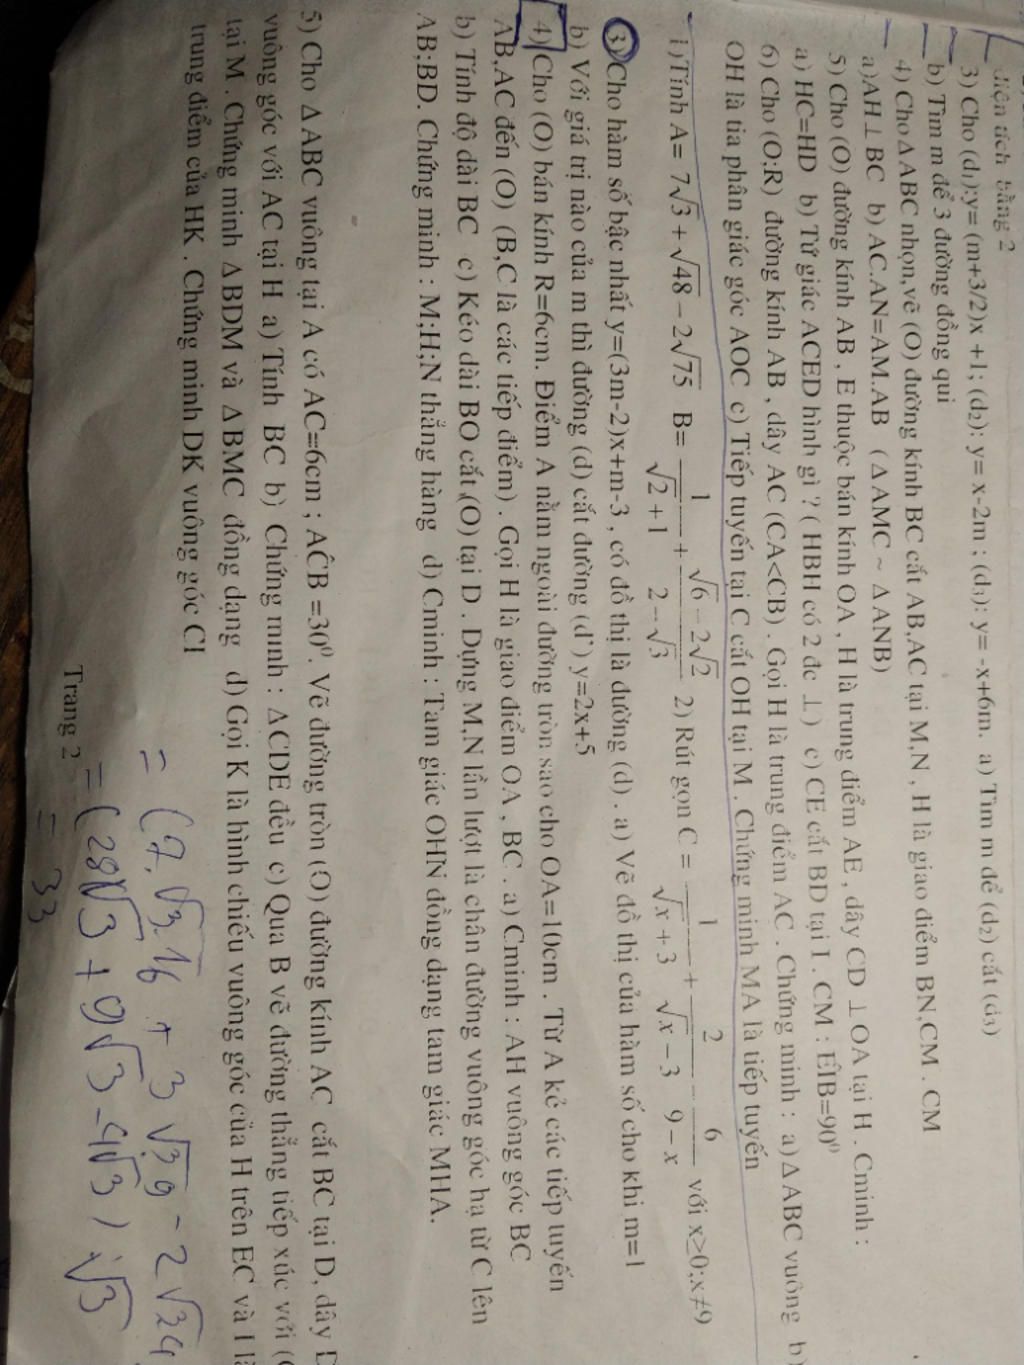 diện tích bằng 2
3) Cho (d₁):y= (m+3/2)x +1; (d₂): y= x-2m ; (d₃): y= -x+6m. a) Tìm m để (d₂) cắt (d₃)
b) Tìm m để 3 đường đồng qui
4) Cho Δ ABC nhọn,vẽ (O) đường kính BC cắt AB,AC tại M,N , H là giao điểm BN,CM . CM
a)AH ⊥ BC b) AC.AN=AM.AB ( Δ AMC ~ Δ ANB)
5) Cho (O) đường kính AB , E thuộc bán kính OA , H là trung điểm AE , dây CD ⊥ OA tại H . Cminh :
a) HC=HD b) Tứ giác ACED hình gì ? ( HBH có 2 đc ⊥ ) c) CE cắt BD tại I . CM : EÎB=90⁰
6) Cho (O;R) đường kính AB , dây AC (CA<CB) . Gọi H là trung điểm AC . Chứng minh : a) Δ ABC vuông b)
OH là tia phân giác góc AOC c) Tiếp tuyến tại C cắt OH tại M . Chứng minh MA là tiếp tuyến
1)Tính A= 7√3 + √48 − 2√75 B= 1/(√2 + 1) + (√6 − 2√2)/(2 − √3) 2) Rút gọn C = 1/(√x + 3) + 2/(√x − 3) − 6/(9 − x) với x≥0;x≠9
3)Cho hàm số bậc nhất y=(3m-2)x+m-3 , có đồ thị là đường (d) . a) Vẽ đồ thị của hàm số cho khi m=1
b) Với giá trị nào của m thì đường (d) cắt đường (d') y=2x+5
4)Cho (O) bán kính R=6cm. Điểm A nằm ngoài đường tròn sao cho OA=10cm . Từ A kẻ các tiếp tuyến
AB,AC đến (O) (B,C là các tiếp điểm) . Gọi H là giao điểm OA , BC . a) Cminh : AH vuông góc BC
b) Tính độ dài BC c) Kéo dài BO cắt (O) tại D . Dựng M,N lần lượt là chân đường vuông góc hạ từ C lên
AB;BD. Chứng minh : M;H;N thẳng hàng d) Cminh : Tam giác OHN đồng dạng tam giác MHA.
5) Cho Δ ABC vuông tại A có AC=6cm ; AĈB =30⁰. Vẽ đường tròn (O) đường kính AC cắt BC tại D, dây D
vuông góc với AC tại H a) Tính BC b) Chứng minh : Δ CDE đều c) Qua B vẽ đường thẳng tiếp xúc với (O
tại M . Chứng minh Δ BDM và Δ BMC đồng dạng d) Gọi K là hình chiếu vuông góc của H trên EC và I là
trung điểm của HK . Chứng minh DK vuông góc CI
= (7.√3.16 + 3√3.9 − 2√24
Trang 2 = (28√3 + 9√3 − 4√3).√3
= 33